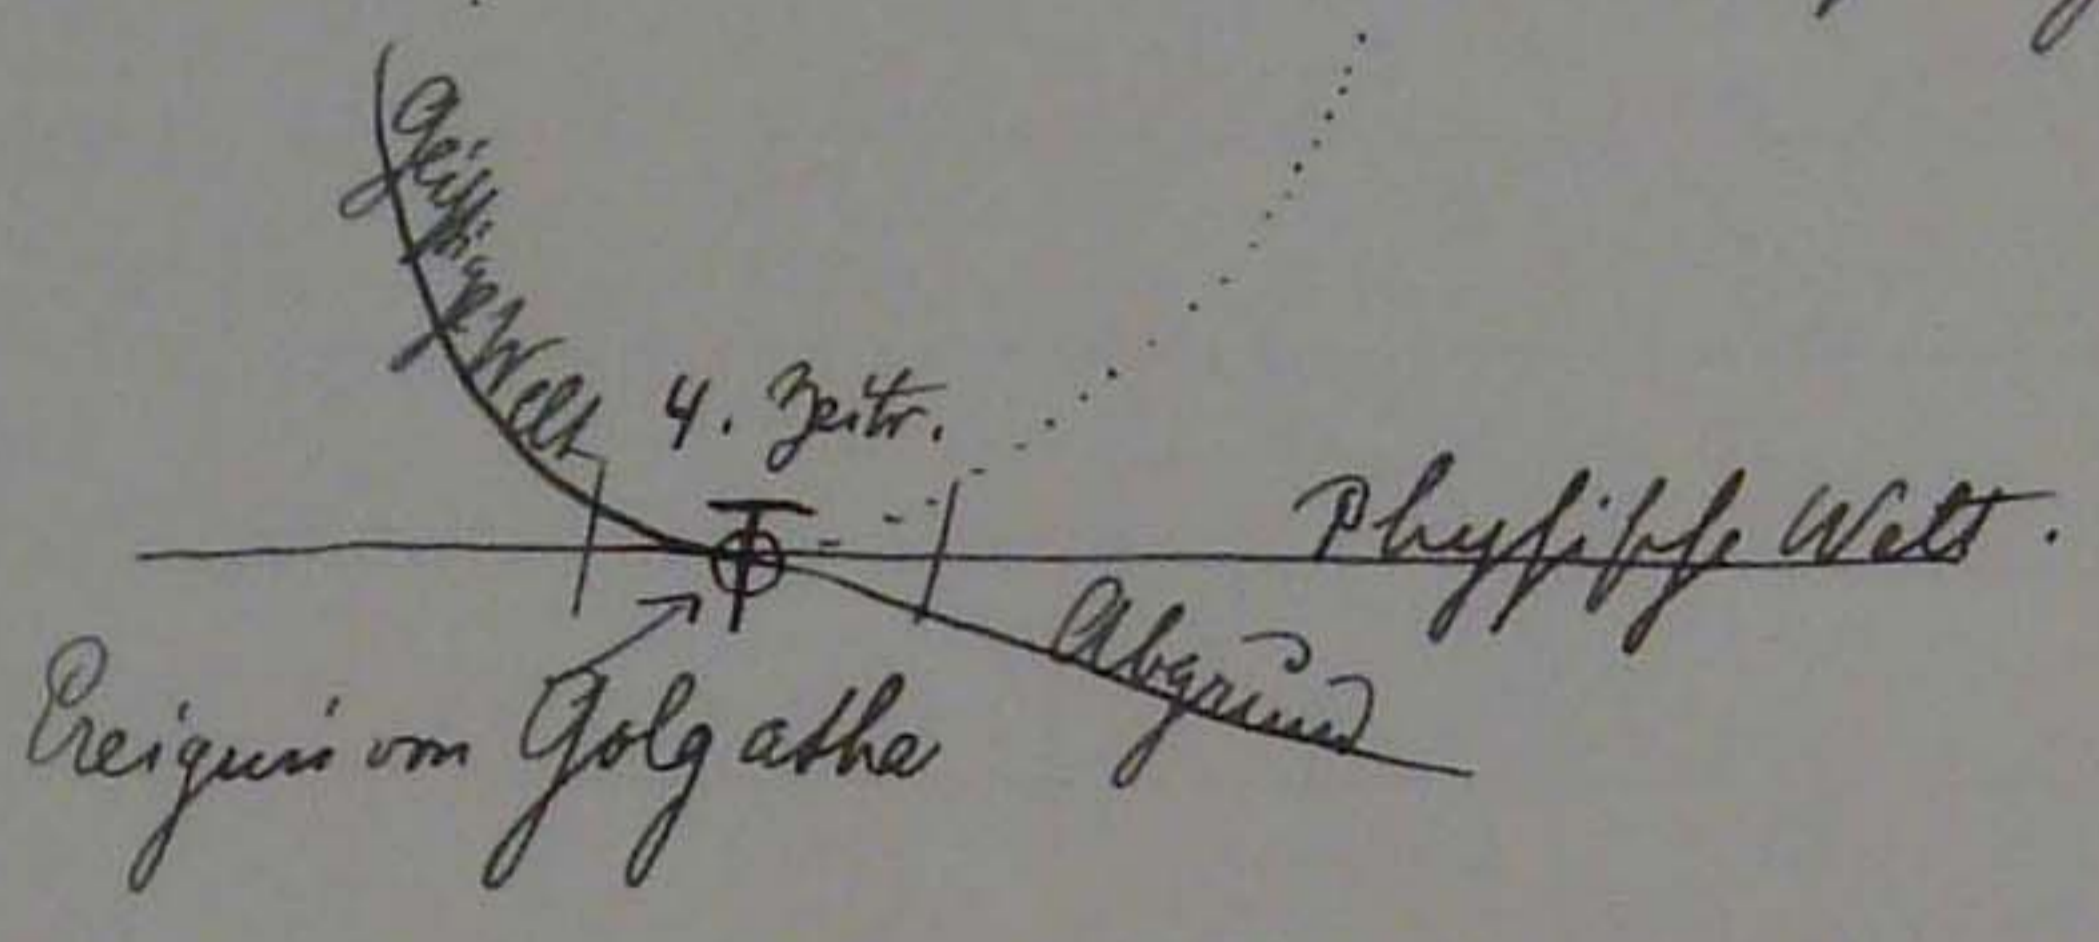 Geistige Welt
4. Zeitr.
Physische Welt.
Abgrund
Ereignis von Golgatha